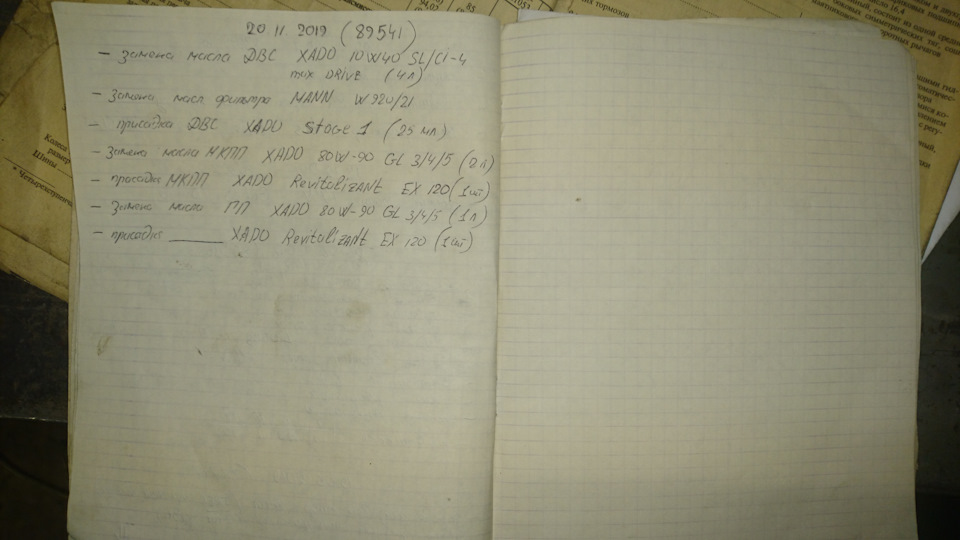 20 11 2019 (89541)
- замена масла ДВС XADO 10W40 SL/CI-4
max DRIVE (4л)
- Замена масл фильтра MANN W920/21
- присадка ДВС XADO Stage 1 (25 мл)
- Замена масла МКПП XADO 80W-90 GL 3/4/5 (2л)
- присадка МКПП XADO Revitalizant EX 120 (1шт)
- Замена масла XADO 80W-90 GL 3/4/5 (1л)
- присадка ______ XADO Revitalizant EX 120 (1шт)
94,02
85
1053
тормозов
число 16,4
Колеса
размер
Шины